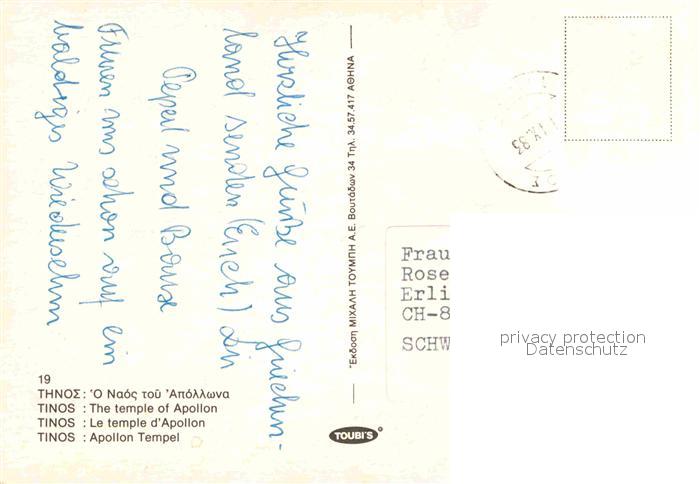 Herzliche Grüße aus Griechen-
land senden (Euch) Dir
Pepel und Bouse
Freuen uns schon auf ein
baldiges Wiedersehen
19
ΤΗΝΟΣ : Ὁ Ναός τοῦ Ἀπόλλωνα
TINOS : The temple of Apollon
TINOS : Le temple d'Apollon
TINOS : Apollon Tempel
Ἔκδοση ΜΙΧΑΛΗ ΤΟΥΜΠΗ Α.Ε. Βουτάδων 34 Τηλ. 34.57.417 ΑΘΗΝΑ
TOUBI'S
Frau
Rose
Erli
CH-8
SCHW
privacy protection
Datenschutz